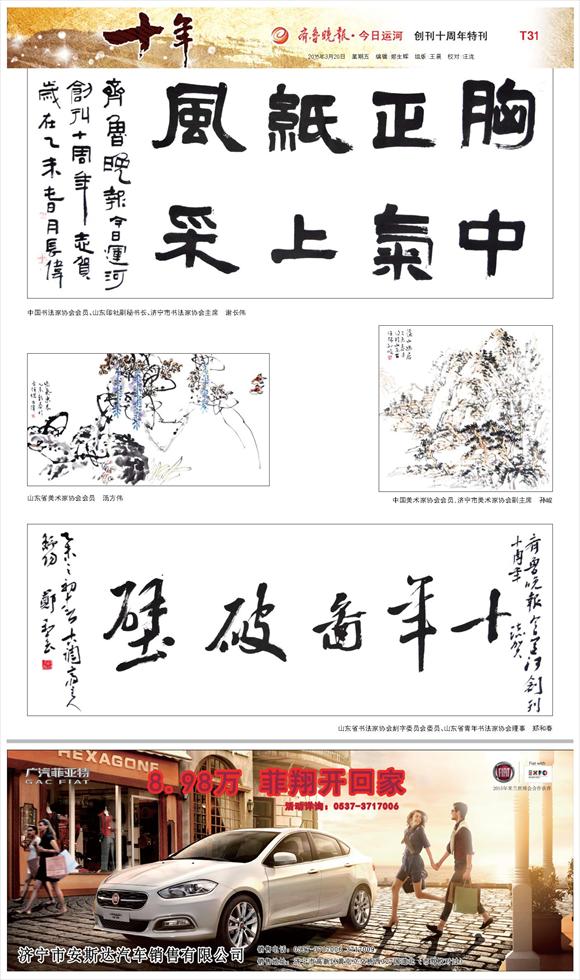 十年
齐鲁晚报·今日运河 创刊十周年特刊
T31
2015年3月20日 星期五 编辑 郑生辉 组版 王晨 校对 汪泷
胸中
正氣
紙上
風采
齊魯晚報今日運河
創刊十周年志賀
歲在乙未春月長偉
中国书法家协会会员、山东印社副秘书长、济宁市书法家协会主席 谢长伟
山东省美术家协会会员 汤方伟
中国美术家协会会员、济宁市美术家协会副主席 孙峻
齐鲁晚報今日運河創刊
十周年誌賀
十年畜破壁
山东省书法家协会刻字委员会委员、山东省青年书法家协会理事 郑和春
HEXAGONE
广汽菲亚特
GAC FIAT
8.98万 菲翔开回家
活动详询：0537-3717006
FIAT
Fiat with
EXPO
2015年米兰世博会合作伙伴
济宁市安斯达汽车销售有限公司
销售电话：0537-3717006 3717009